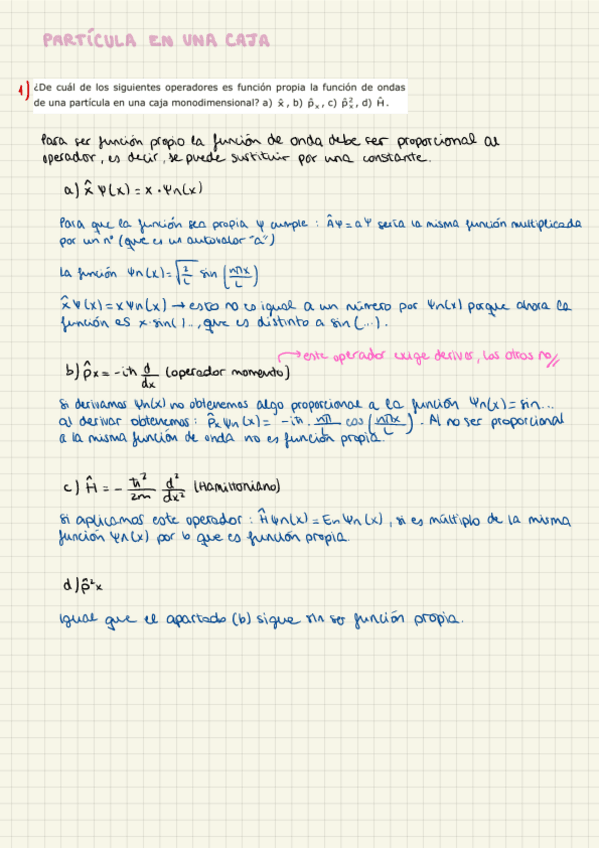 PARTÍCULA EN UNA CAJA
1) ¿De cuál de los siguientes operadores es función propia la función de ondas
de una partícula en una caja monodimensional? a) x̂, b) p̂ₓ, c) p̂ₓ², d) Ĥ.
Para ser función propia la función de onda debe ser proporcional al
operador, es decir, se puede sustituir por una constante.
a) x̂ ψ(x) = x · ψn(x)
Para que la función sea propia ψ cumple : Âψ = aψ sería la misma función multiplicada
por un nº (que es un autovalor "a")
La función ψn(x) = √(2/L) sin (nπx/L)
x̂ψ(x) = xψn(x) → esto no es igual a un número por ψn(x) porque ahora la
función es x·sin(.., que es distinto a sin(...).
→ este operador exige derivar, los otros no//
b) p̂x = -iħ d/dx (operador momento)
Si derivamos ψn(x) no obtenemos algo proporcional a la función ψn(x) = sin...
al derivar obtenemos : p̂xψn(x) = -iħ · nπ/L cos (nπx/L) . Al no ser proporcional
a la misma función de onda no es función propia.
c) Ĥ = - ħ²/2m d²/dx² (Hamiltoniano)
Si aplicamos este operador : Ĥψn(x) = Enψn(x), si es múltiplo de la misma
función ψn(x) por lo que es función propia.
d) p̂²x
Igual que el apartado (b) sigue sin ser función propia.